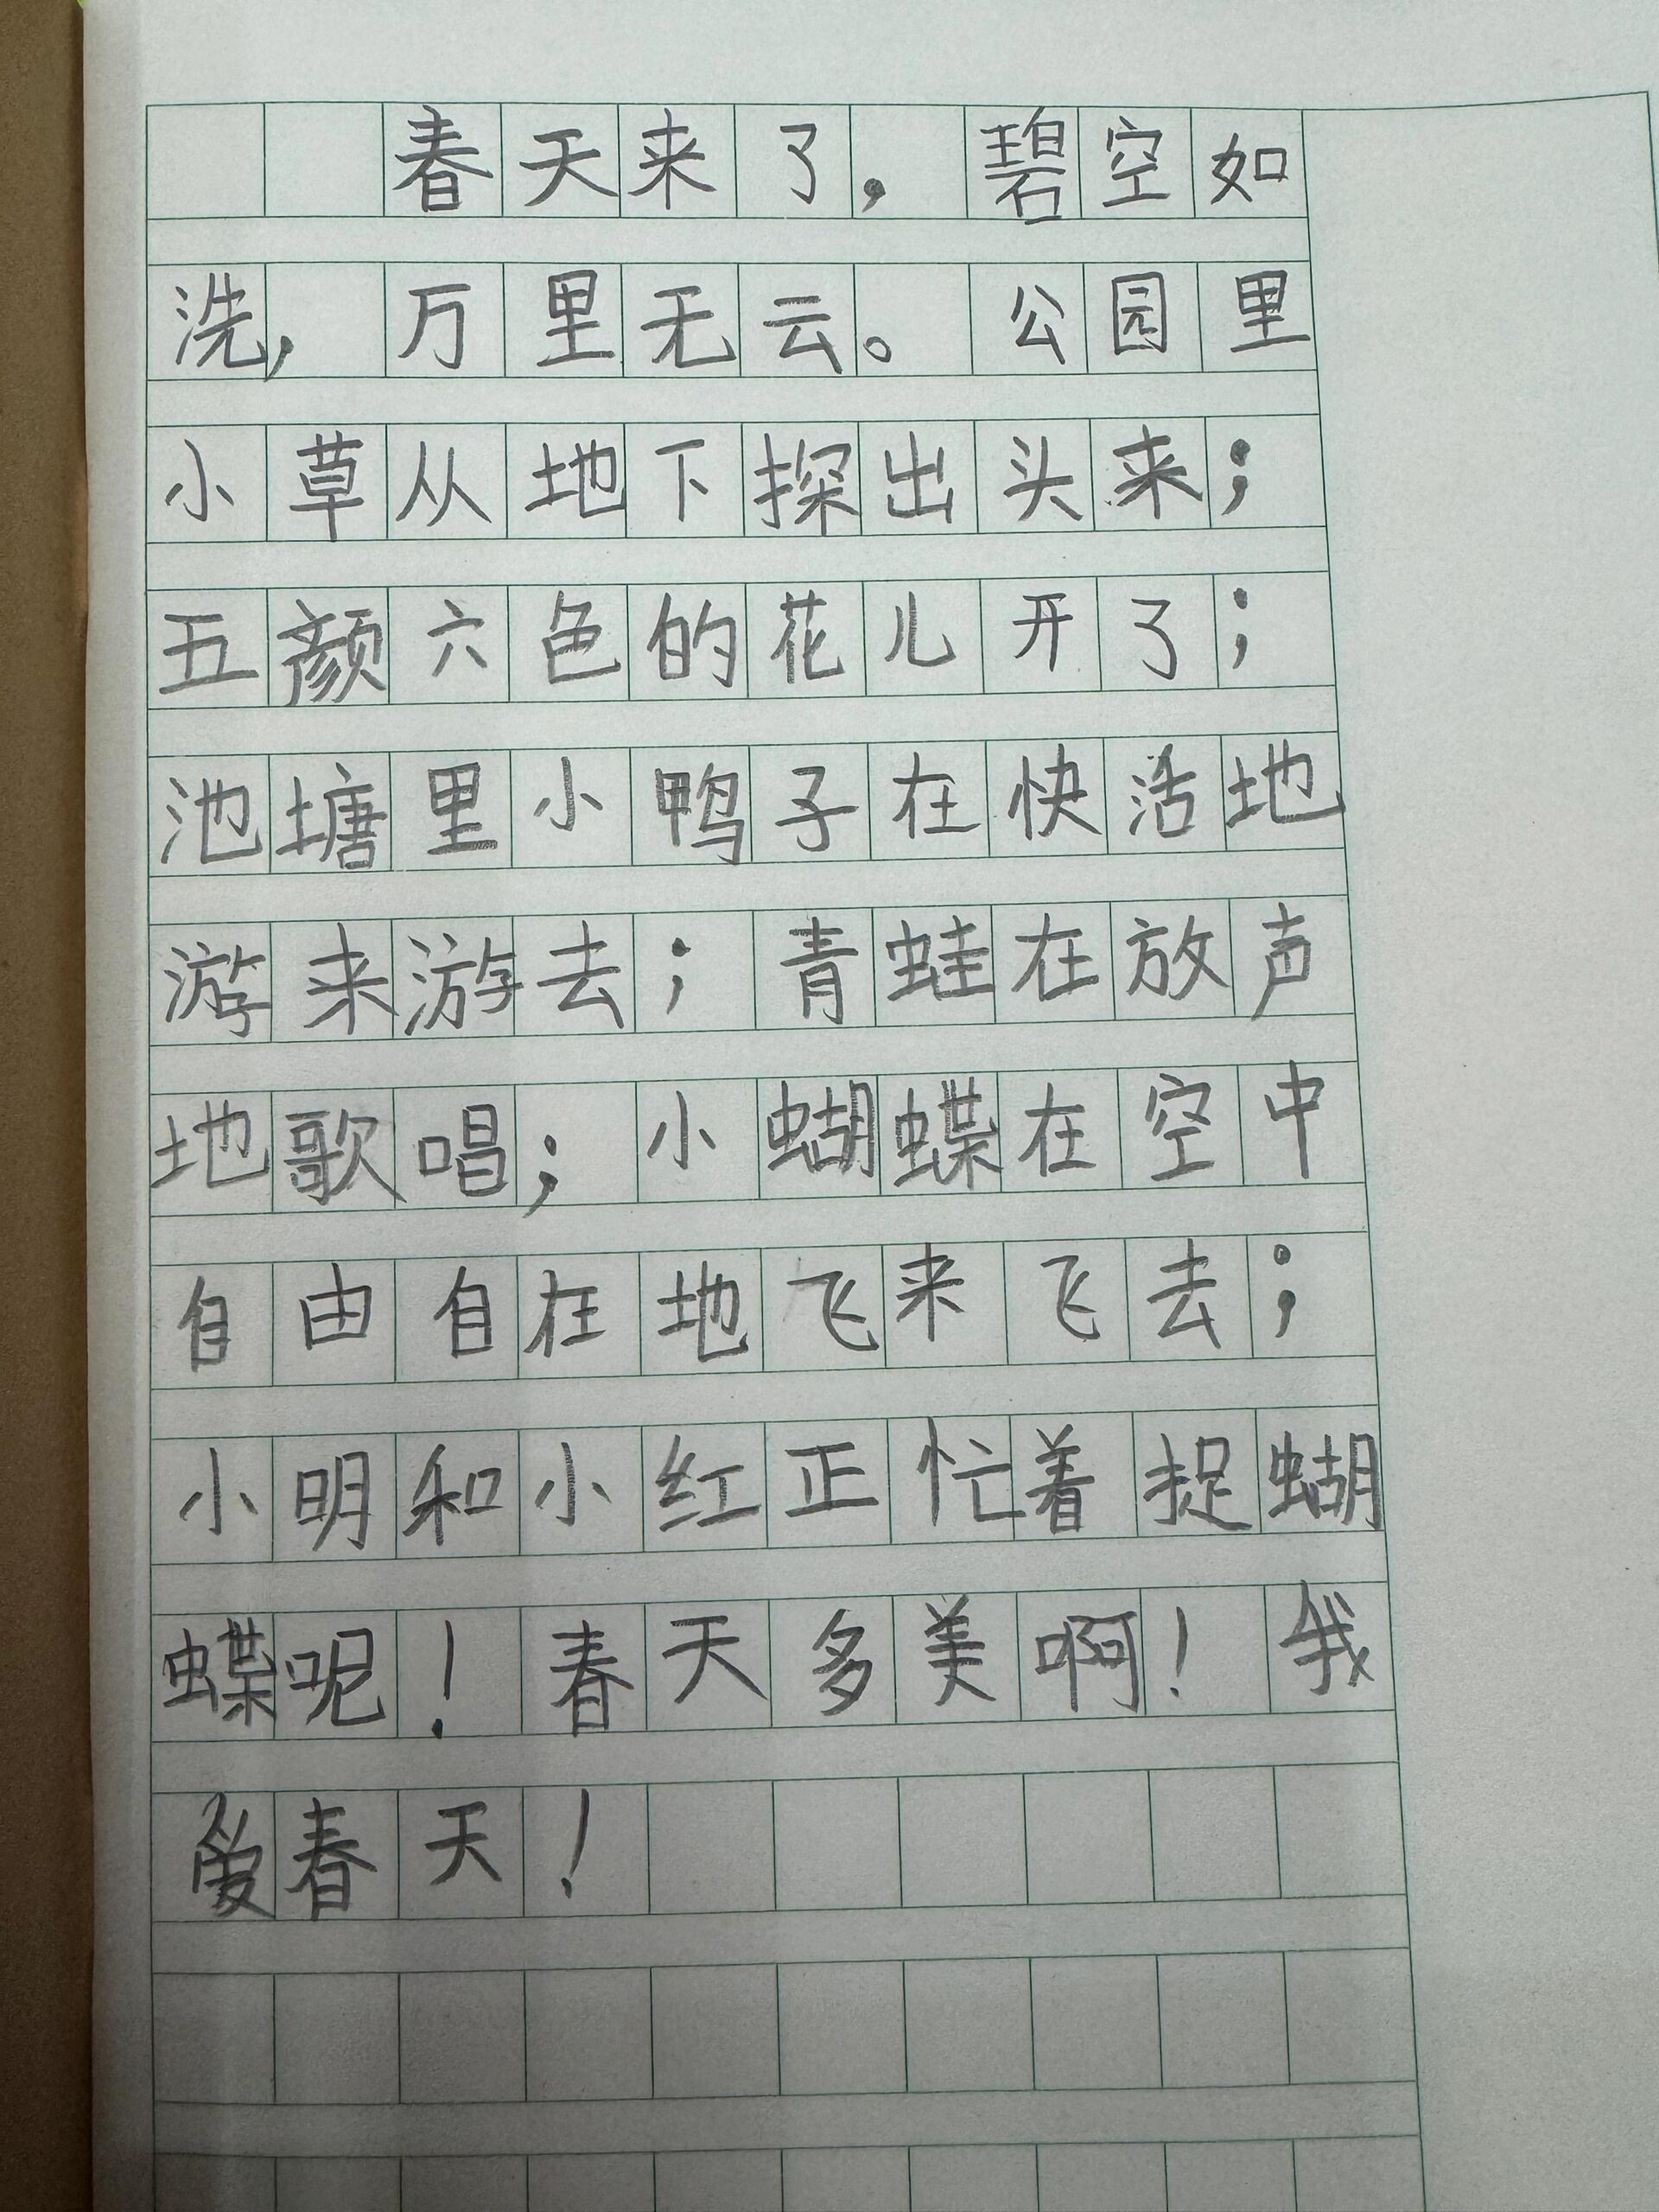 春天来了，碧空如
洗，万里无云。公园里
小草从地下探出头来；
五颜六色的花儿开了；
池塘里小鸭子在快活地
游来游去；青蛙在放声
地歌唱；小蝴蝶在空中
自由自在地飞来飞去；
小明和小红正忙着捉蝴
蝶呢！春天多美啊！我
爱春天！